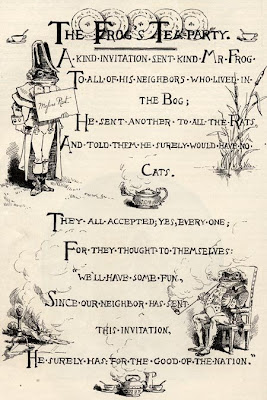 THE FROG'S TEA-PARTY.
A·KIND·INVITATION·SENT·KIND·MR·FROG·
TO·ALL·OF·HIS·NEIGHBORS·WHO·LIVED·IN·
THE·BOG;
HE·SENT·ANOTHER·TO·ALL·THE·RATS
AND·TOLD·THEM·HE·SURELY·WOULD·HAVE·NO·
CATS.
THEY·ALL·ACCEPTED; YES, EVERY·ONE;
FOR·THEY·THOUGHT·TO·THEMSELVES:
"WE'LL·HAVE·SOME·FUN,
SINCE·OUR·NEIGHBOR·HAS·SENT·
THIS·INVITATION,
HE·SURELY·HAS·FOR·THE·GOOD·OF·THE·NATION."